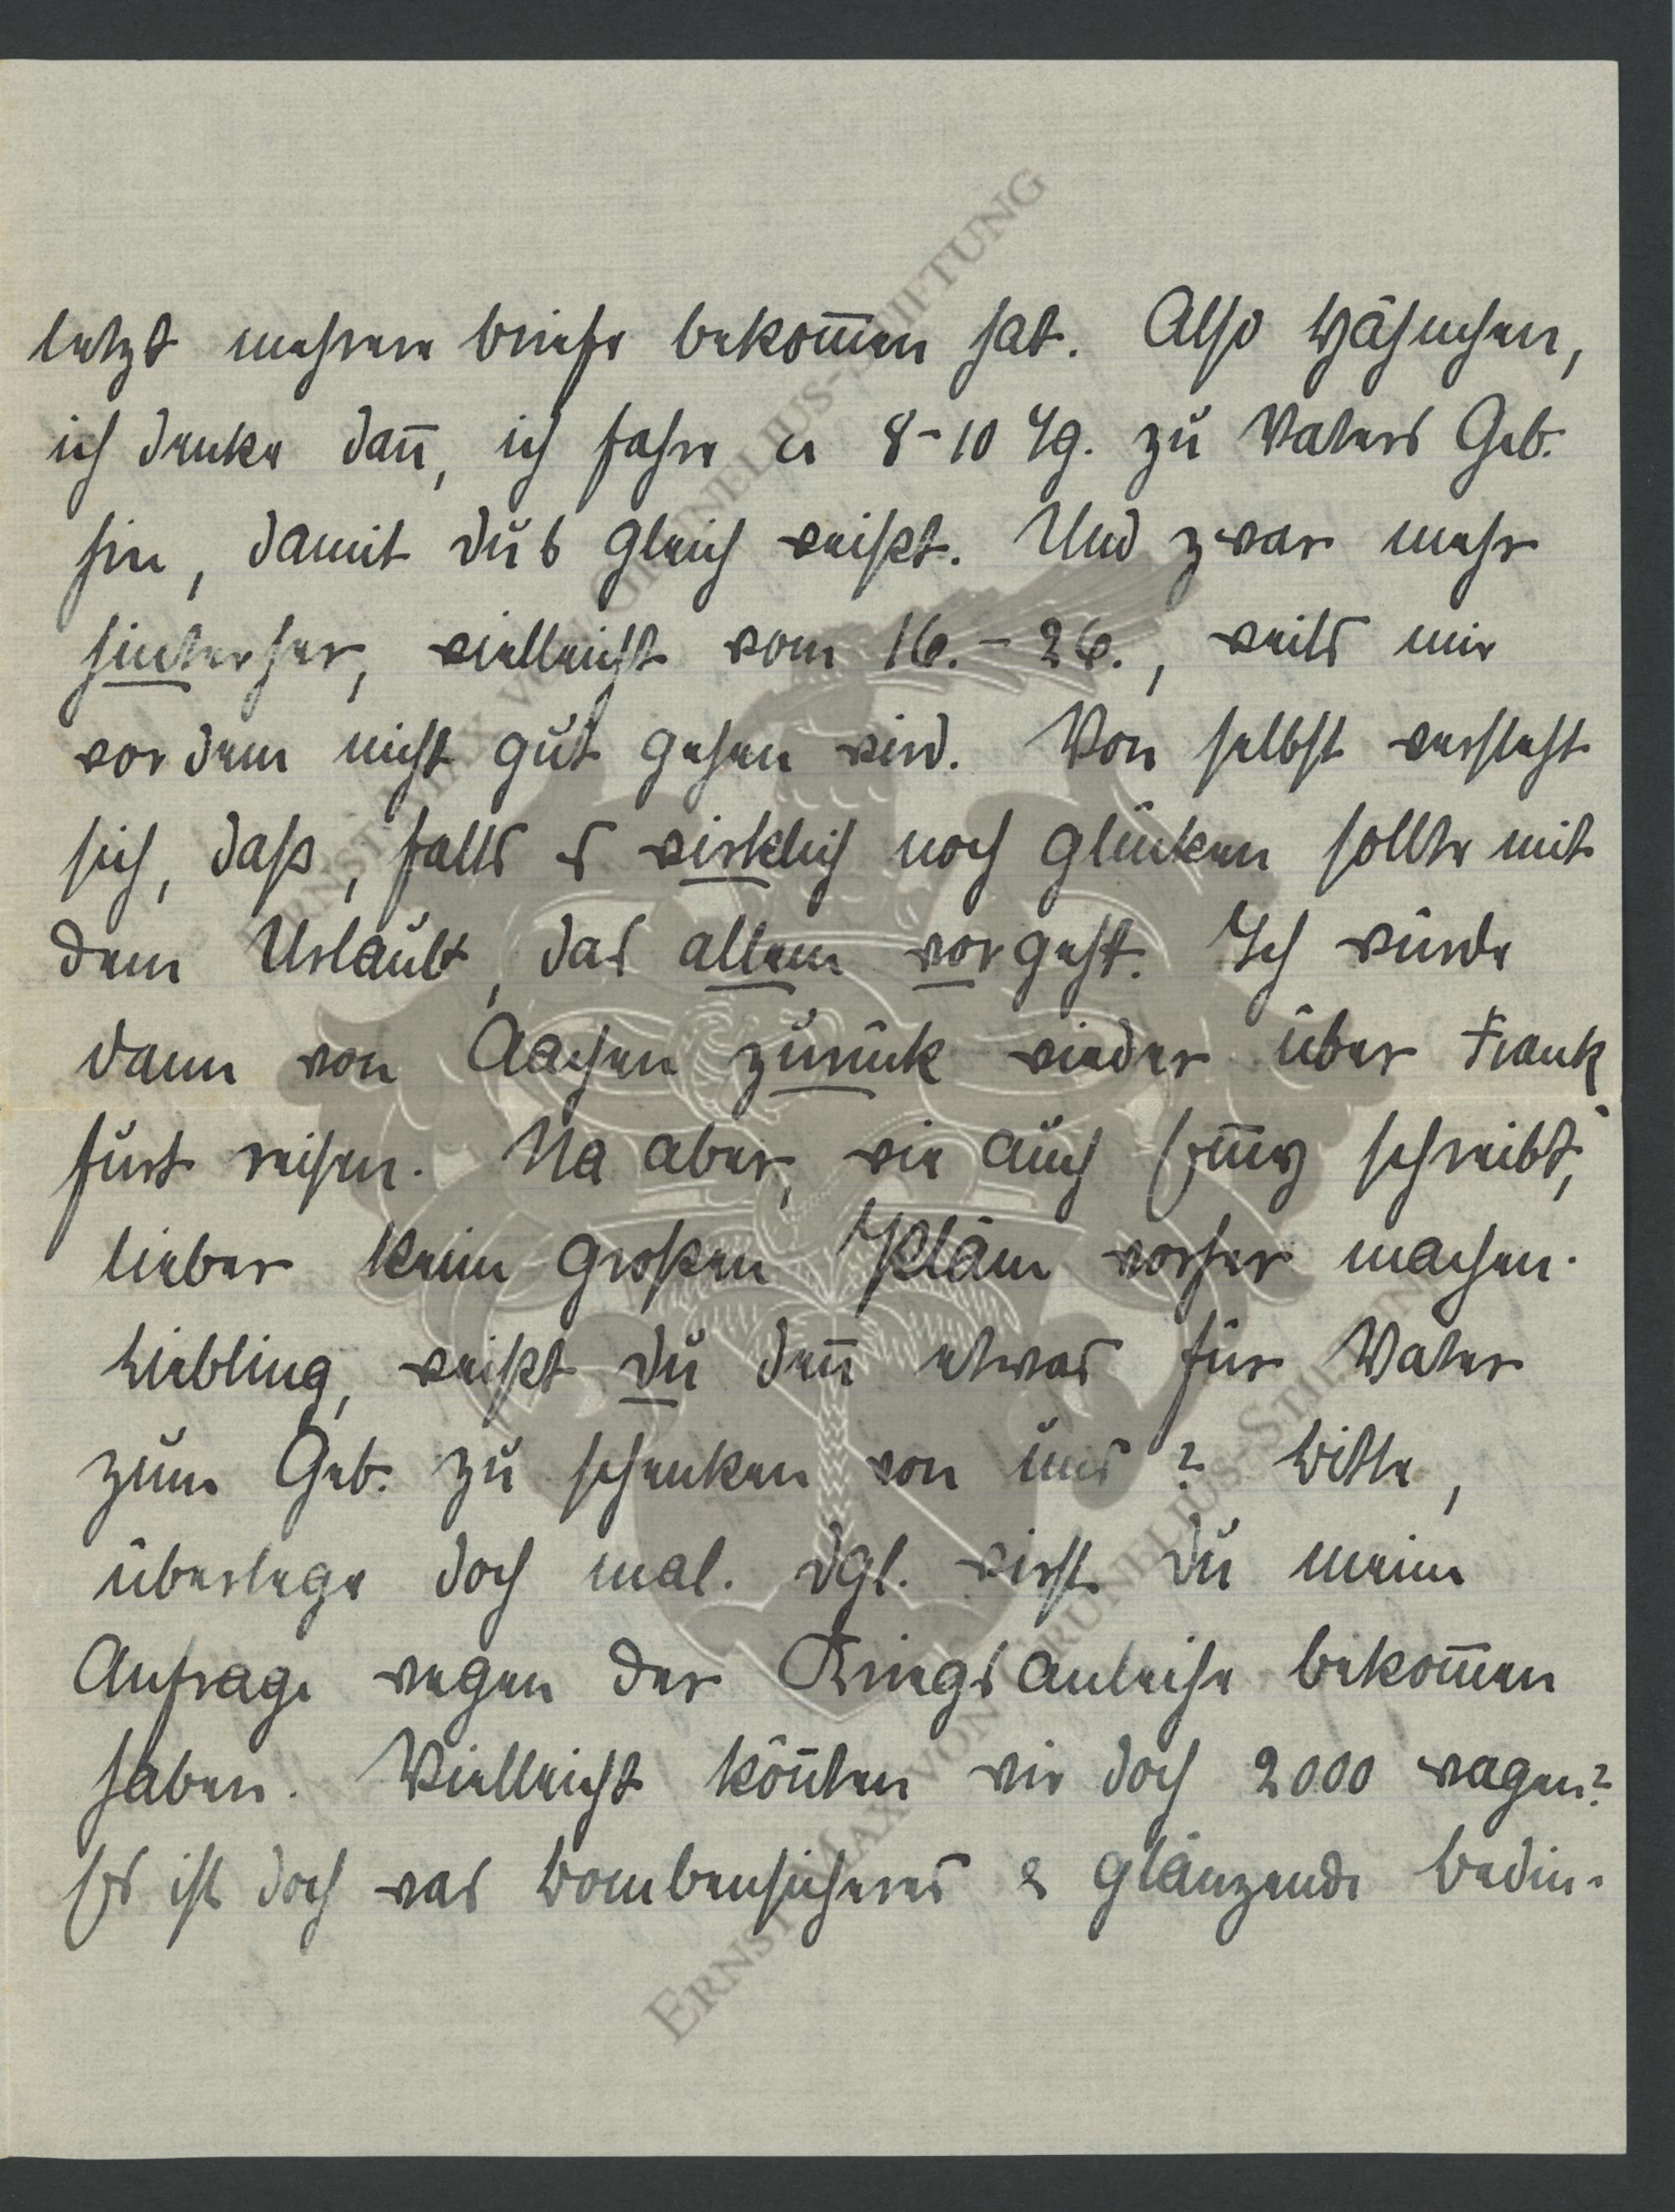 letzt mehrere Briefe bekom̅en hat. Also
ich denke dan̅, ich fahre ca 8-10 Tg. zu Vaters Geb.
hin, damit du's gleich weißt. Und zwar mehr
hinterher, vielleicht vom 16.-26., weils mir
vordem nicht gut gehen wird. Von selbst versteht
sich, daß, falls es wirklich noch glücken sollte mit
dem Urlaub, das allem vorgeht. Ich würde
dann von Aachen zurück wieder über Frank
furt reisen. Na aber, wie auch schreibt,
lieber keine großen Pläne vorher machen.
Liebling, weißt du den̅ etwas für Vater
zum Geb. zu schenken von uns? Bitte,
überlege doch mal. Dgl. wirst du meine
Anfrage wegen der Kriegsanleihe bekom̅en
haben. Vielleicht kön̅ten wir doch 2000 wagen?
Es ist doch was bombensicheres & glänzende Bedin-
ERNST MAX VON GRUNELIUS-STIFTUNG
ERNST MAX VON GRUNELIUS-STIFTUNG